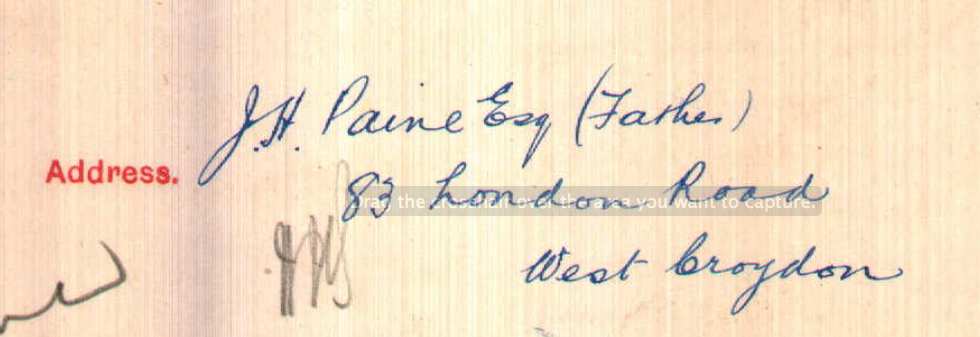 J.H. Paine Esq (Father)
Address.
83 London Road
Drag the crosshair over the area you want to capture.
West Croydon